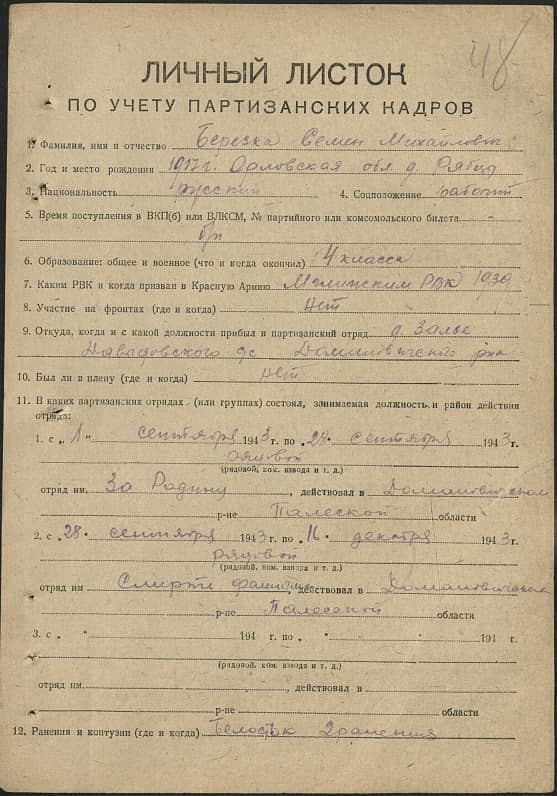 48
ЛИЧНЫЙ ЛИСТОК
ПО УЧЕТУ ПАРТИЗАНСКИХ КАДРОВ
1. Фамилия, имя и отчество Березка Семен Михайлович
2. Год и место рождения 1917 г. Орловская обл д.
3. Национальность русский 4. Соцположение рабочий
5. Время поступления в ВКП(б) или ВЛКСМ, № партийного или комсомольского билета -
б/п
6. Образование: общее и военное (что и когда окончил) 4 класса
7. Каким РВК и когда призван в Красную Армию Мглинским РВК 1939
8. Участие на фронтах (где и когда) Нет
9. Откуда, когда и с какой должности прибыл в партизанский отряд д.
с/с р-на
10. Был ли в плену (где и когда) нет
11. В каких партизанских отрядах (или группах) состоял, занимаемая должность и район действия
отряда:
1. с „1" сентября 1943 г. по „28" сентября 1943 г.
рядовой
(рядовой, ком. взвода и т. д.)
отряд им. За Родину, действовал в Домановичском
р-не Палеской области
2. с „28" сентября 1943 г. по „16" декабря 1943 г.
рядовой
(рядовой, ком. взвода и т. д.)
отряд им Смерть фашизму, действовал в Домановичском
р-не Палеской области
3. с „ " 194 г. по „ " 194 г.
(рядовой, ком. взвода и т. д.)
отряд им. , действовал в
р-не области
12. Ранения и контузии (где и когда) Белосток 2 ранения